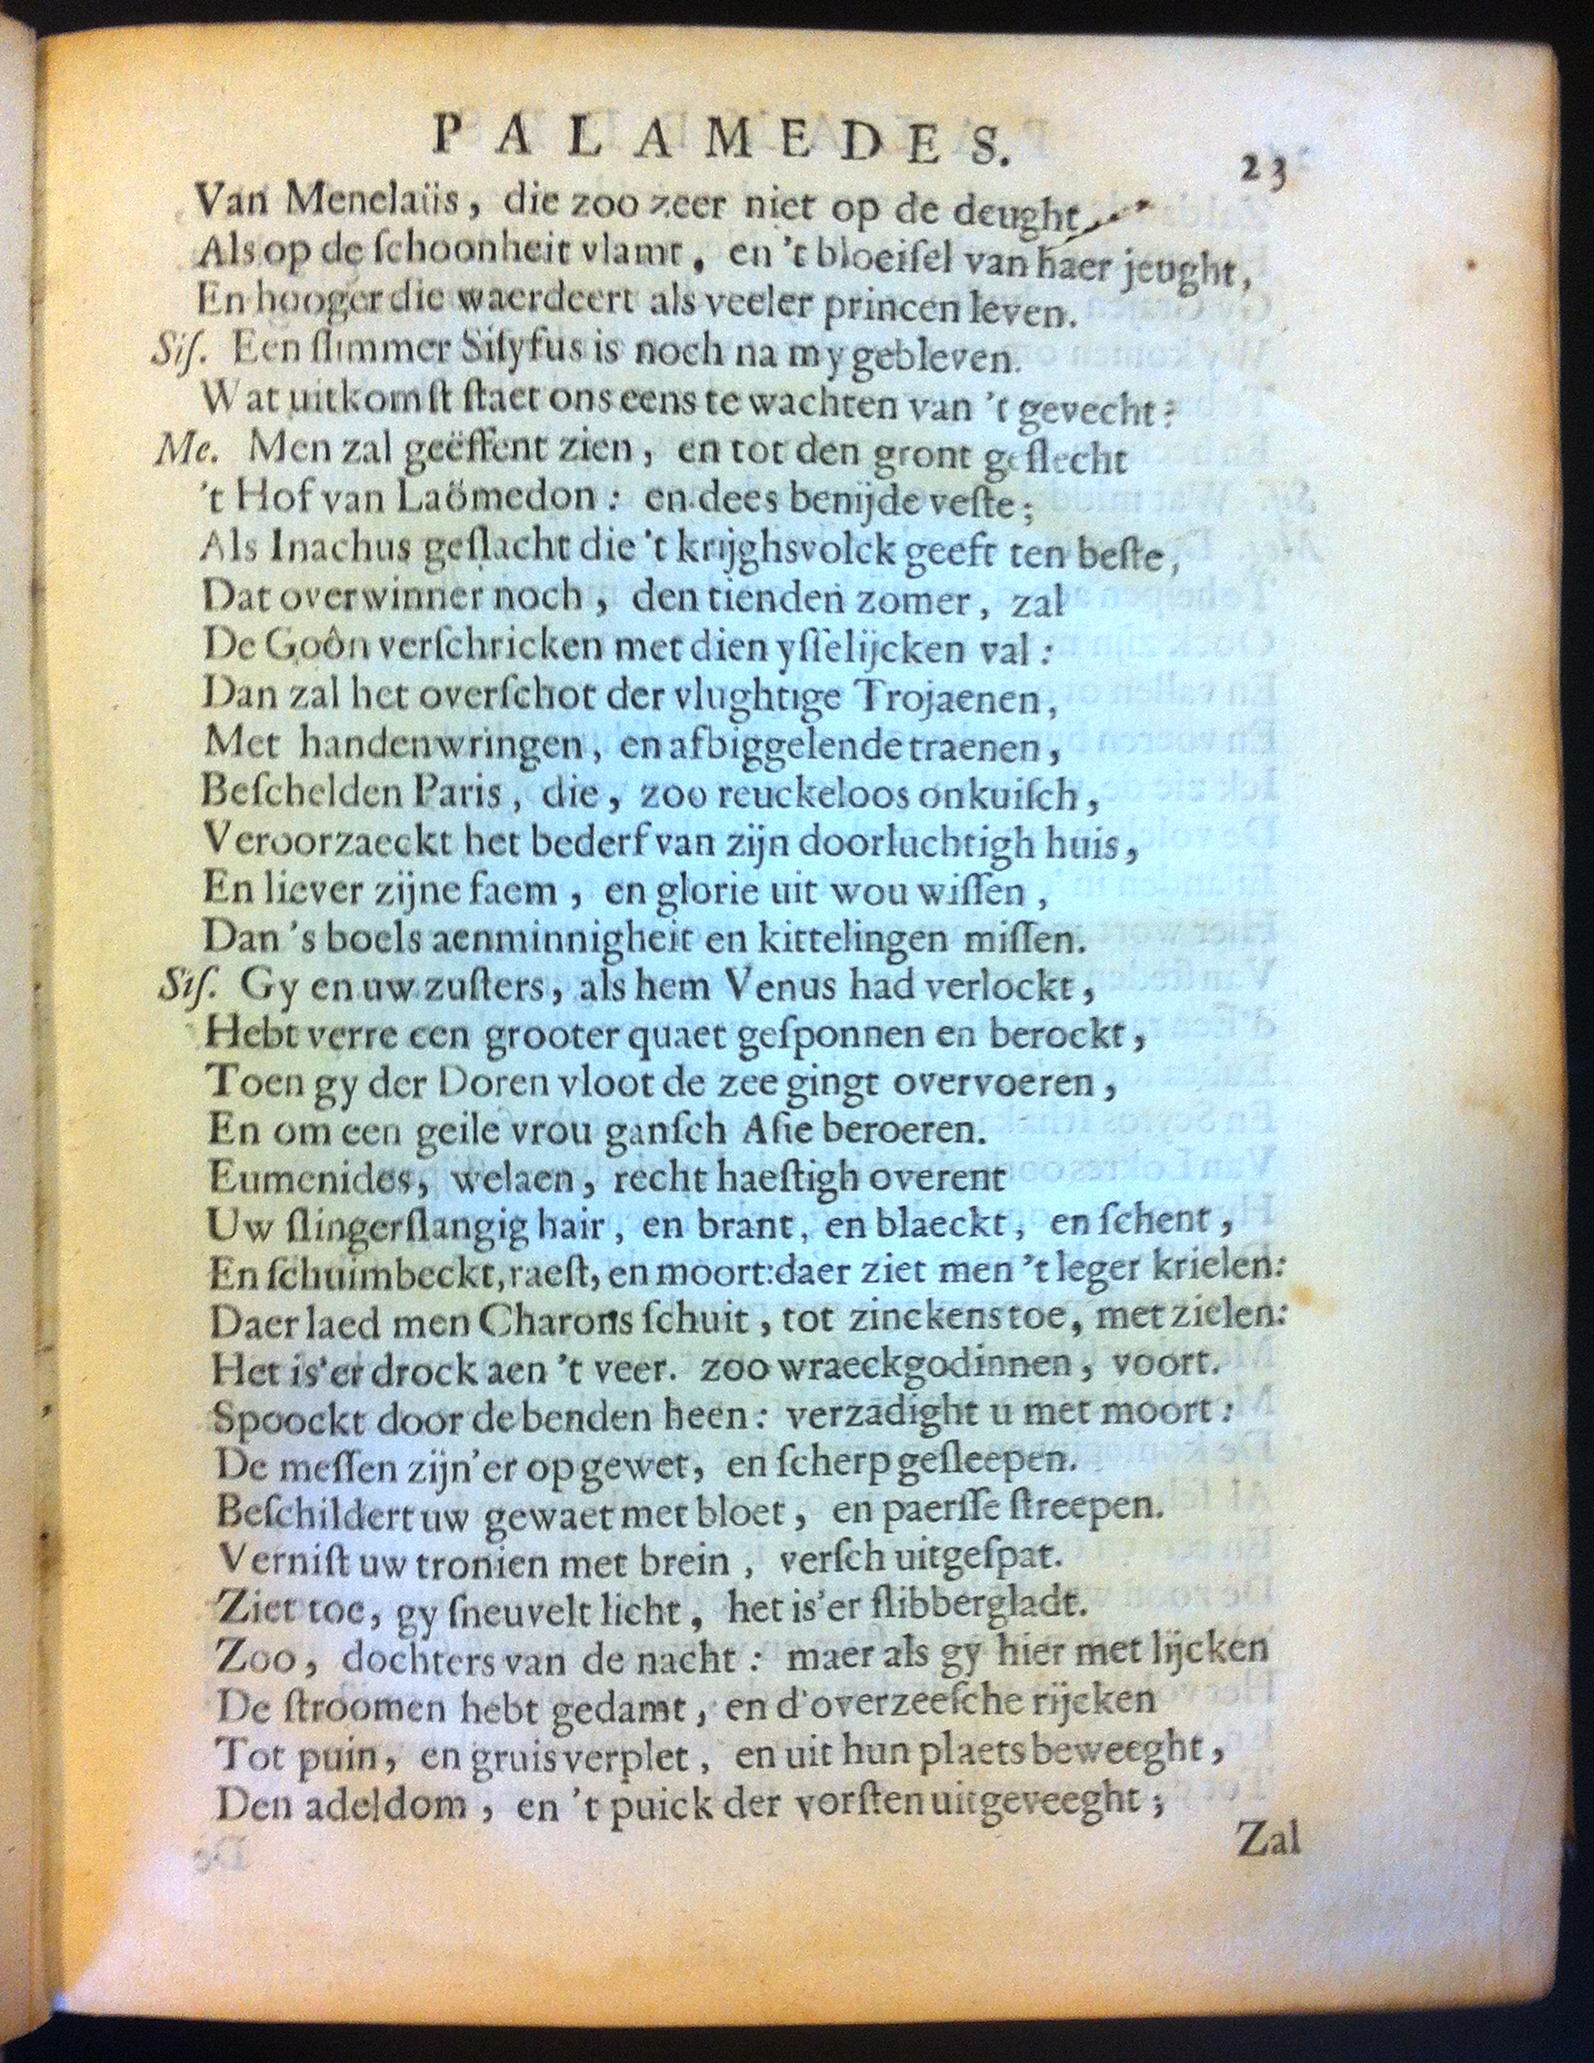 PALAMEDES. 23
Van Menelaüs, die zoo zeer niet op de deught
Als op de ſchoonheit vlamt, en 't bloeiſel van haer jeught,
En hooger die waerdeert als veeler princen leven.
Siſ. Een ſlimmer Siſyfus is noch na my gebleven.
Wat uitkomſt ſtaet ons eens te wachten van 't gevecht?
Me. Men zal geëffent zien, en tot den gront geſlecht
't Hof van Laömedon: en dees benijde veſte;
Als Inachus geſlacht die 't krijghsvolck geeft ten beſte,
Dat overwinner noch, den tienden zomer, zal
De Goôn verſchricken met dien yſſelijcken val:
Dan zal het overſchot der vlughtige Trojaenen,
Met handenwringen, en afbiggelende traenen,
Beſchelden Paris, die, zoo reuckeloos onkuiſch,
Veroorzaeckt het bederf van zijn doorluchtigh huis,
En liever zijne faem, en glorie uit wou wiſſen,
Dan 's boels aenminnigheit en kittelingen miſſen.
Siſ. Gy en uw zuſters, als hem Venus had verlockt,
Hebt verre een grooter quaet geſponnen en berockt,
Toen gy der Doren vloot de zee gingt overvoeren,
En om een geile vrou ganſch Aſie beroeren.
Eumenides, welaen, recht haeſtigh overent
Uw ſlingerſlangig hair, en brant, en blaeckt, en ſchent,
En ſchuimbeckt, raeſt, en moort: daer ziet men 't leger krielen:
Daer laed men Charons ſchuit, tot zinckens toe, met zielen:
Het is'er drock aen 't veer. zoo wraeckgodinnen, voort.
Spoockt door de benden heen: verzadight u met moort:
De meſſen zijn'er op gewet, en ſcherp geſleepen.
Beſchildert uw gewaet met bloet, en paerſſe ſtreepen.
Verniſt uw tronien met brein, verſch uitgeſpat.
Ziet toe, gy ſneuvelt licht, het is'er ſlibbergladt.
Zoo, dochters van de nacht: maer als gy hier met lijcken
De ſtroomen hebt gedamt, en d'overzeeſche rijcken
Tot puin, en gruis verplet, en uit hun plaets beweeght,
Den adeldom, en 't puick der vorſten uitgeveeght;
Zal